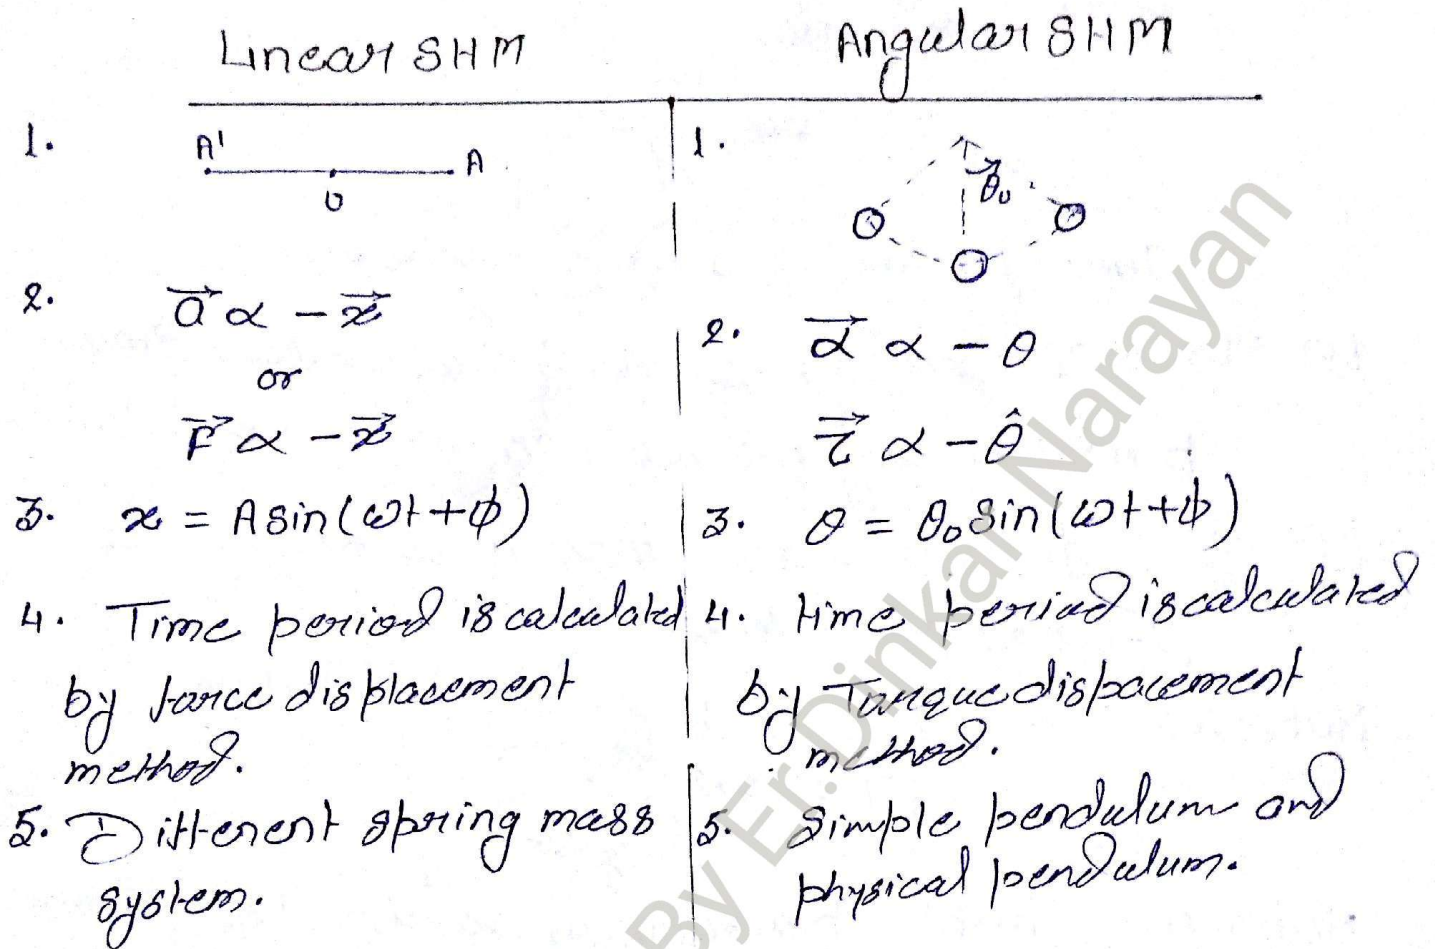 Linear SHM
Angular SHM
1.
A' A
O
1.
θ₀
2. a⃗ α -x⃗
or
F⃗ α -x⃗
2. α⃗ α -θ
τ⃗ α -θ̂
3. x = A sin(ωt+ϕ)
3. θ = θ₀ sin(ωt+ϕ)
4. Time period is calculated
by force displacement
method.
4. time period is calculated
by Torque dispacement
method.
5. Different spring mass
system.
5. Simple pendulum and
physical pendulum.
By Er.Dinkar Narayan